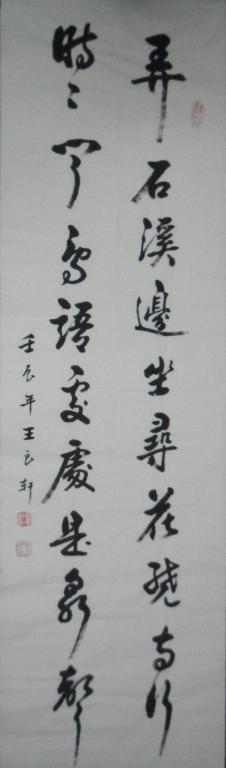 弄石溪邊坐尋花繞寺行
時〻聞鳥語處處是泉聲
壬辰年王良軒